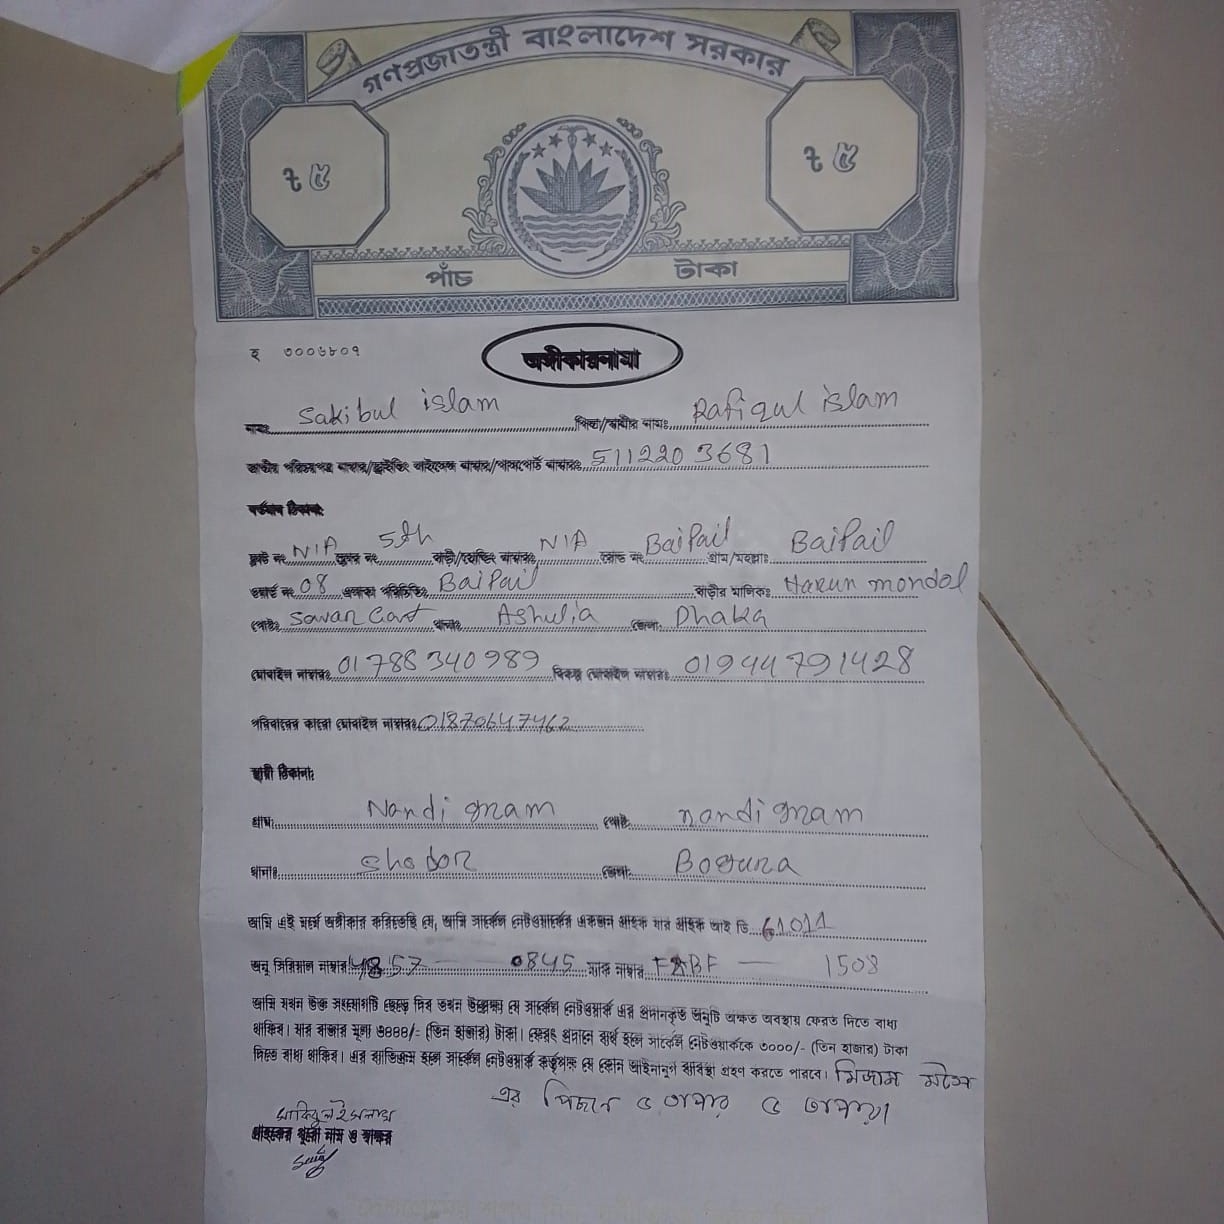 গণপ্রজাতন্ত্রী বাংলাদেশ সরকার
৳ ৫ ৳ ৫
পাঁচ টাকা
ঙ্গীকারনামা
নামঃ Sakibul islam পিতা/স্বামীর নামঃ Rafiqul islam
জাতীয় পরিচয়পত্র নাম্বার/ড্রাইভিং লাইসেন্স নাম্বার/পাসপোর্ট নাম্বারঃ 5112203681
বর্তমান ঠিকানা:
ফ্লাট নং N/A ফ্লোর নং 5th বাড়ী/হোল্ডিং নাম্বারঃ N/A রোড নং Baipail গ্রাম/মহল্লাঃ Baipail
ওয়ার্ড নং 08 এলাকা পরিচিতিঃ Baipail বাড়ীর মালিকঃ Harun mondol
পোষ্টঃ Savar Cant থানাঃ Ashulia জেলা: Dhaka
মোবাইল নাম্বারঃ 01788340989 বিকল্প মোবাইল নাম্বারঃ 01944791428
পরিবারের কারো মোবাইল নাম্বারঃ 01870647462
স্থায়ী ঠিকানা:
গ্রাম: Nandi gram পোষ্ট: nandi gram
থানাঃ Shodor জেলা: Bogura
আমি এই মর্মে অঙ্গীকার করিতেছি যে, আমি সার্কেল নেটওয়ার্কের একজন গ্রাহক যার গ্রাহক আই ডি 61011
অনু সিরিয়াল নাম্বার 4857 — 0845 ম্যাক নাম্বার F8BF — 1508
আমি যখন উক্ত সংযোগটি ছেড়ে দিব তখন উল্লেখ্য যে সার্কেল নেটওয়ার্ক এর প্রদানকৃত অনুটি অক্ষত অবস্থায় ফেরত দিতে বাধ্য
থাকিব। যার বাজার মূল্য ৩০০০/= (তিন হাজার) টাকা। ফেরৎ প্রদানে ব্যর্থ হলে সার্কেল নেটওয়ার্ককে ৩০০০/- (তিন হাজার) টাকা
দিতে বাধ্য থাকিব। এর ব্যতিক্রম হলে সার্কেল নেটওয়ার্ক কর্তৃপক্ষ যে কোন আইনানুগ ব্যবস্থা গ্রহণ করতে পারবে।
এর পিছনে ৫ তালার ৫ তালায়।
সাকিবুল ইসলাম
গ্রাহকের পুরো নাম ও স্বাক্ষর